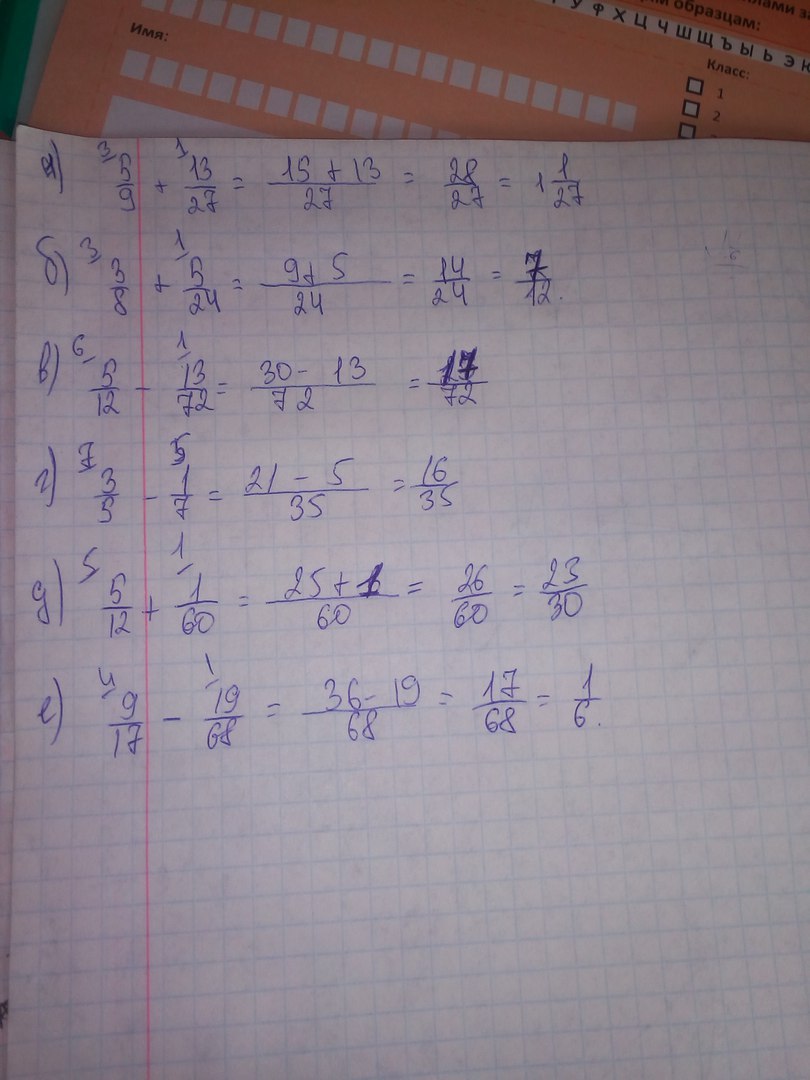 лами за
м образцам:
У Ф Х Ц Ч Ш Щ Ъ Ы Ь Э Ю
Имя:
Класс:
1
2
а) ³⁄ 5/9 + ¹⁄ 13/27 = (15 + 13)/27 = 28/27 = 1 1/27
б) ³⁄ 3/8 + ¹⁄ 5/24 = (9 + 5)/24 = 14/24 = 7/12.
в) ⁶⁄ 5/12 - ¹⁄ 13/72 = (30 - 13)/72 = 17/72
г) ⁷ 3/5 - ⁵ 1/7 = (21 - 5)/35 = 16/35
д) ⁵⁄ 5/12 + ¹⁄ 1/60 = (25 + 1)/60 = 26/60 = 23/30
е) ⁴⁄ 9/17 - ¹⁄ 19/68 = (36 - 19)/68 = 17/68 = 1/6.